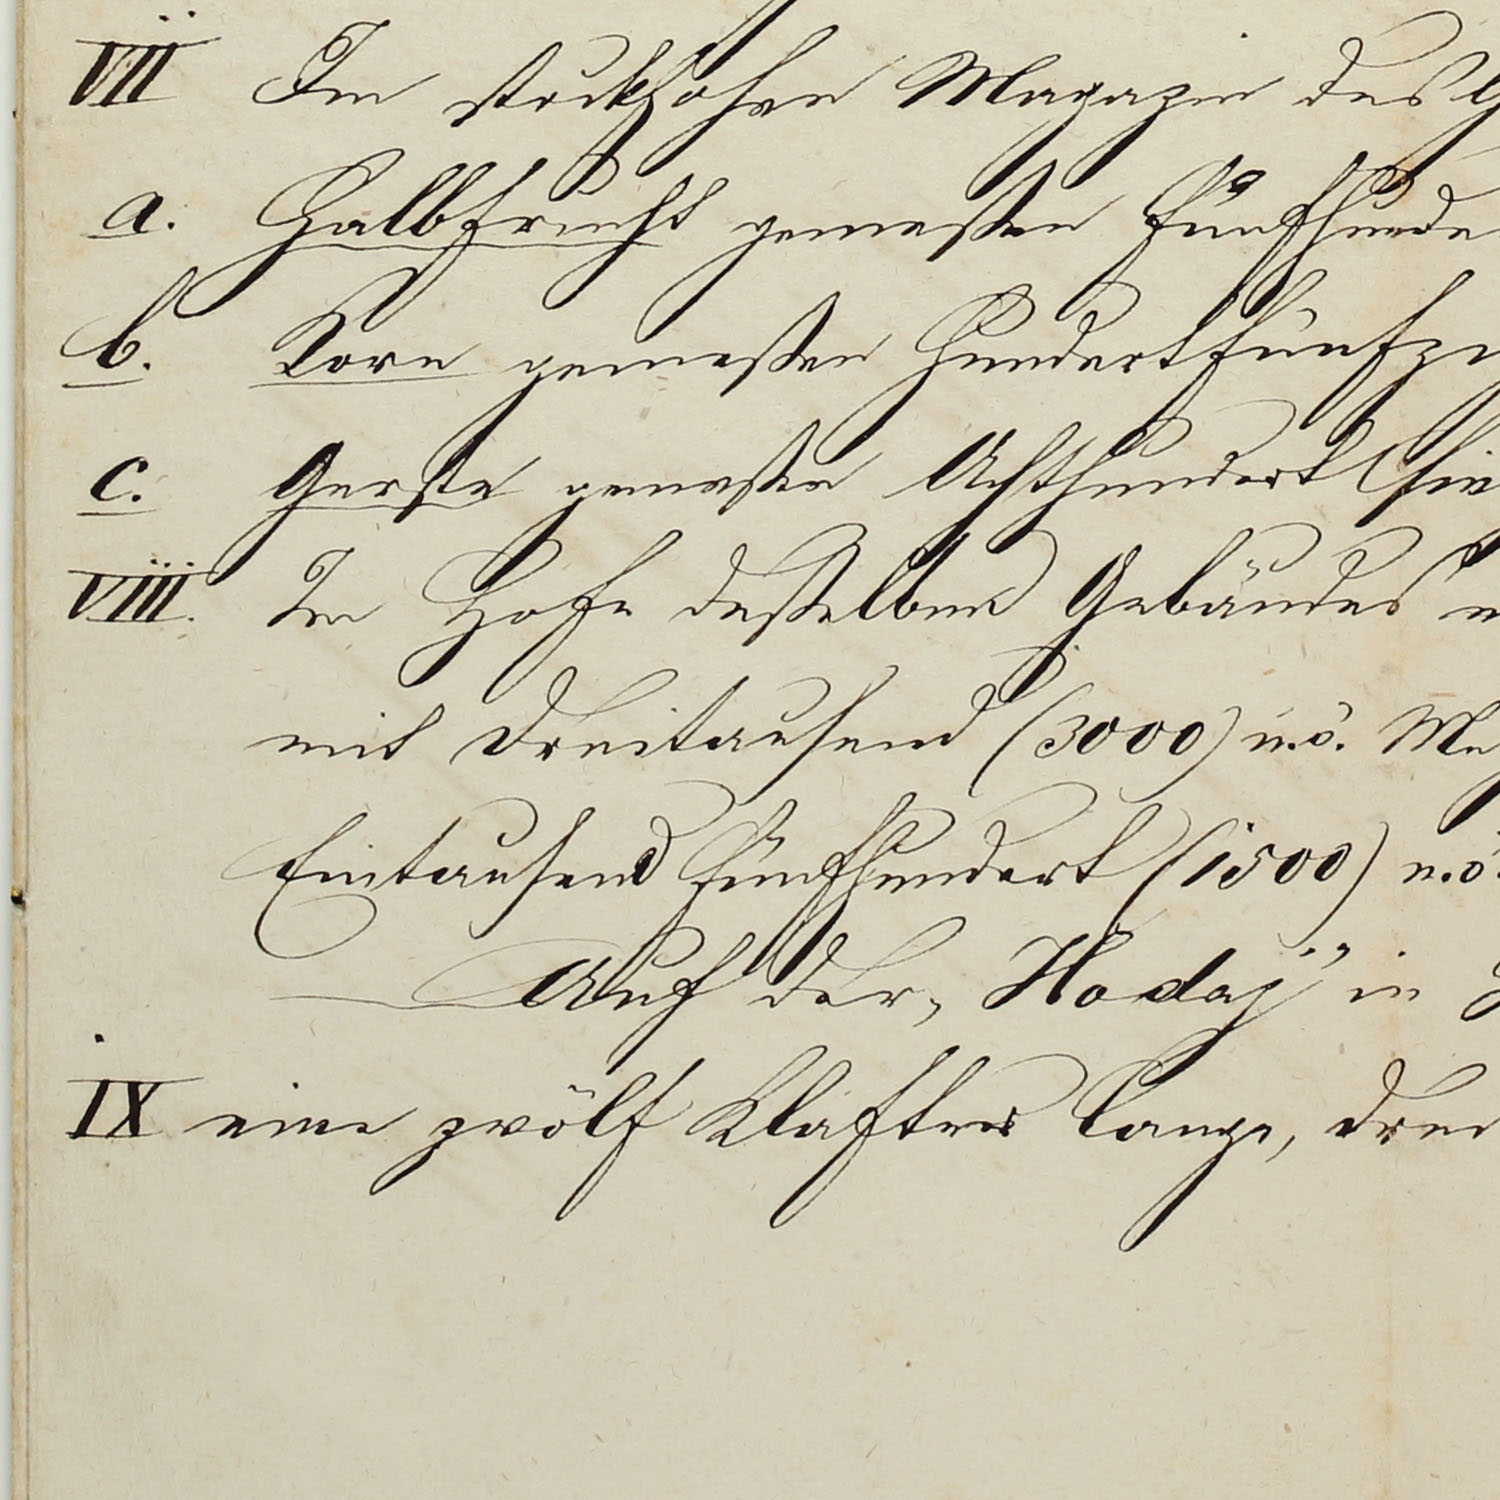 VII Im stockhohen Magazin des
a. Halbfrucht gemeßen Fünfhunde
b. Korn gemeßen Hundertfünfzi
c. Gerste gemeßen Achthundert (hie
VIII. Im Hofe deßelben Gebäudes
mit Dreitausend (3000) n.ö. Me
Eintausend Fünfhundert (1500) n.ö.
Auf der „Hodaj" in
IX eine zwölf Klafter lange, drei